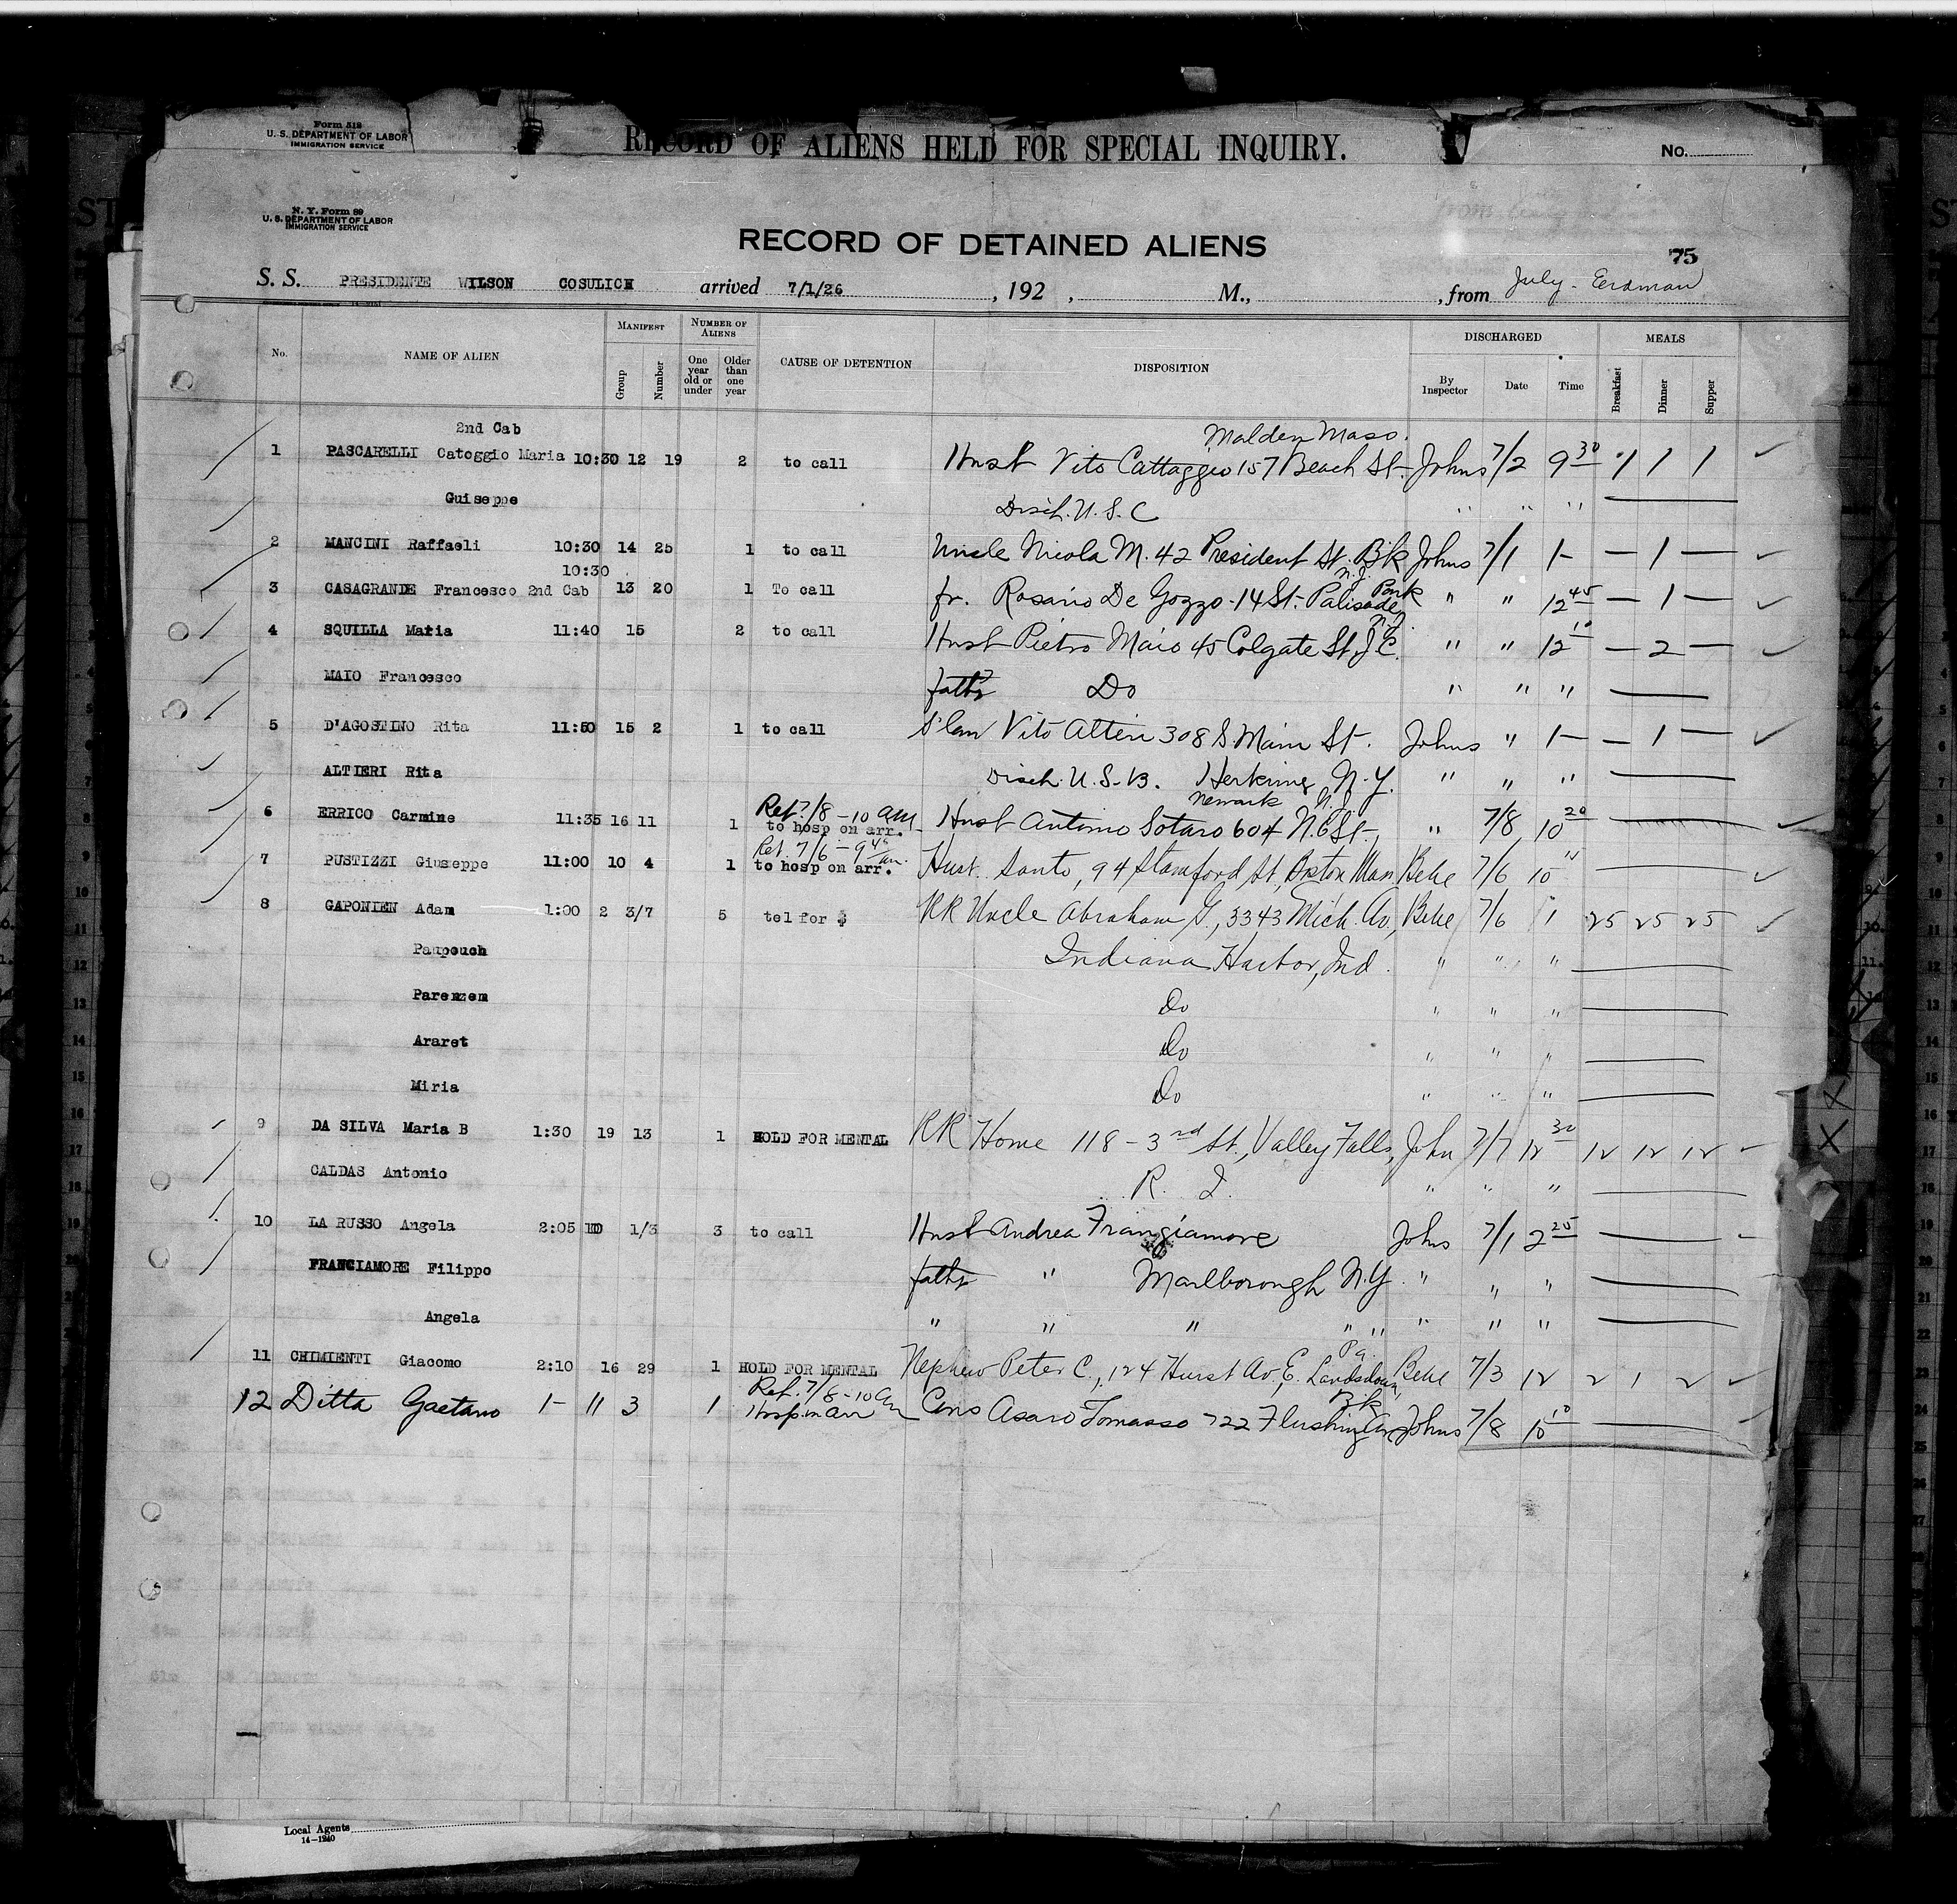 Form 518
U. S. DEPARTMENT OF LABOR
IMMIGRATION SERVICE
RECORD OF ALIENS HELD FOR SPECIAL INQUIRY.
No.
N. Y. Form 89
U. S. DEPARTMENT OF LABOR
IMMIGRATION SERVICE
RECORD OF DETAINED ALIENS
75
S. S. PRESIDENTE WILSON COSULICH arrived 7/1/26, 192 , M., , from July - Erdman
No. NAME OF ALIEN MANIFEST Group Number NUMBER OF ALIENS One year old or under Older than one year CAUSE OF DETENTION DISPOSITION DISCHARGED By Inspector Date Time MEALS Breakfast Dinner Supper
2nd Cab Malden Mass.
1 PASCARELLI Catoggio Maria 10:30 12 19 2 to call Husb Vito Cattaggio 157 Beach St. Johns 7/2 9 30 1 1 1
Guiseppe Disch. U. S. C " " "
2 MANCINI Raffaeli 10:30 14 25 1 to call Uncle Nicola M. 42 President St. Bk Johns 7/1 1- — 1 —
10:30 N.J.
3 CASAGRANDE Francesco 2nd Cab 13 20 1 To call fr. Rosario De Gozzo - 14 St. Palisade Park " " 12 45 — 1 —
N.J.
4 SQUILLA Maria 11:40 15 2 to call Husb Pietro Maio 45 Colgate St. J C. " " 12 10 — 2 —
MAIO Francesco father Do " " "
5 D'AGOSTINO Rita 11:50 15 2 1 to call Vito Altieri 308 S. Main St. Johns " 1- — 1 —
ALTIERI Rita Disch. U.S.B. Herkimer N.Y. " " "
Ret. 7/8 - 10 AM Newark N.J.
6 ERRICO Carmine 11:35 16 11 1 to hosp on arr. Husb Antimo Sotaro 604 N. 6 St. " 7/8 10 20
Ret. 7/6 - 9 45 am.
7 PUSTIZZI Giuseppe 11:00 10 4 1 to hosp on arr. Husb. Santo, 94 Stamford St., Boston Mass 7/6 10
8 GAPONIEN Adam 1:00 2 3/7 5 tel for $ RR Uncle Abraham G., 3343 Mich. Av., 7/6 1 25 25 25
Paupouch Indiana Harbor, Ind. " " "
Parenzem Do " " "
Araret Do " " "
Miria Do " " "
9 DA SILVA Maria B 1:30 19 13 1 HOLD FOR MENTAL RR Home 118 - 3rd St., Valley Falls, John 7/7 12 30 12 12 12
CALDAS Antonio R. I. " " "
10 LA RUSSO Angela 2:05 1/3 3 to call Husb Andrea Frangiamore Johns 7/1 2 25
FRANGIAMORE Filippo father " Marlborough N.Y. " " "
Angela " " " " " " " "
Pa.
11 CHIMIENTI Giacomo 2:10 16 29 1 HOLD FOR MENTAL Nephew Peter C., 124 Hurst Av., E. Landsdown, 7/3 12 2 1 2
Ret. 7/8 - 10 am Bk
12 Ditta Gaetano 1- 11 3 1 Hosp. on arr Cous Asaro Tomasso 722 Flushing Av Johns 7/8 10 10
Local Agents
14-1240